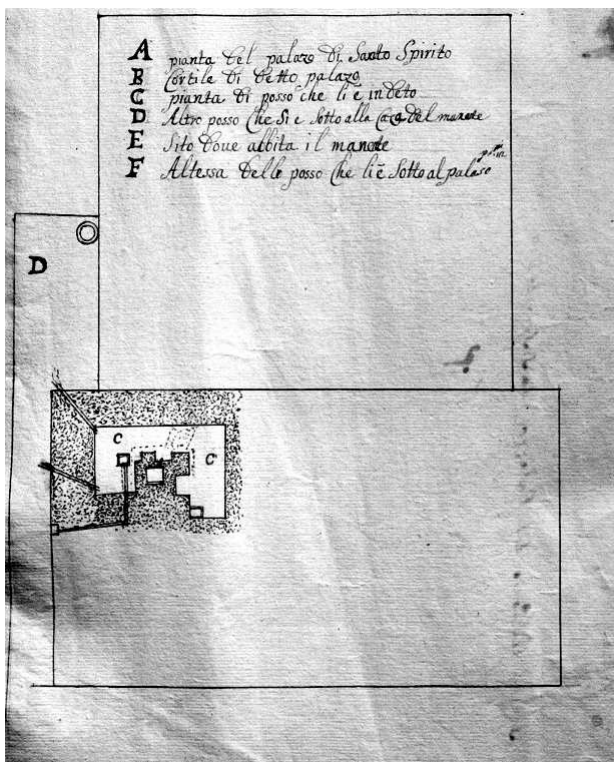 A pianta del palazo di Santo Spirito
B Cortile di detto palazo
C pianta di posso che li è in deto
D Altro posso che si è sotto alla Casa del manete
E Sito doue abbita il manete
F Altessa delle posso che li è sotto al palaso
D
C
C